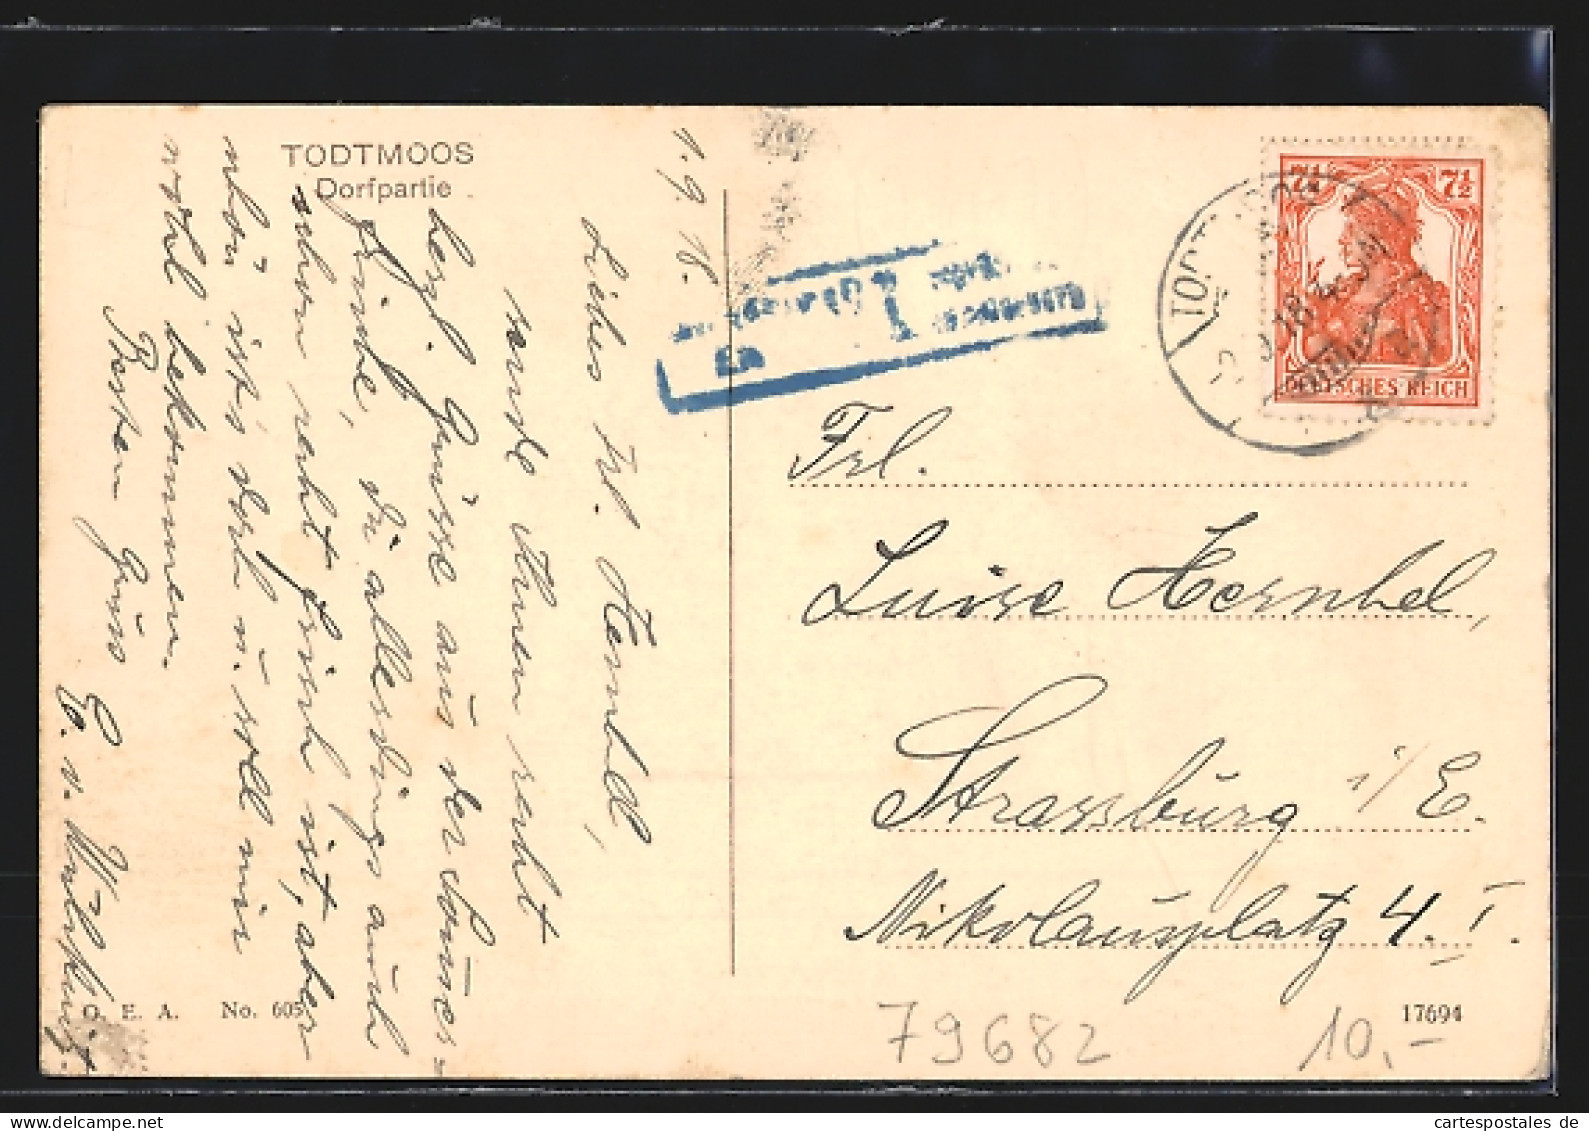 TODTMOOS
Dorfpartie
1. 9. 18.
Liebes Frl. Hembel,
sende Ihnen recht
herzl. Grüsse aus der Sommer-
frische, die allerdings auch
recht frisch ist, aber
schön ist's doch u. soll mir
wohl bekommen.
Besten Gruss
E. v.
O. E. A. No. 605
7½ 7½
DEUTSCHES REICH
TODTMOOS
Frl.
Luise Hembel,
Strassburg i/E.
Nikolausplatz 4. I.
17694
79682
10,-
cartespostales de